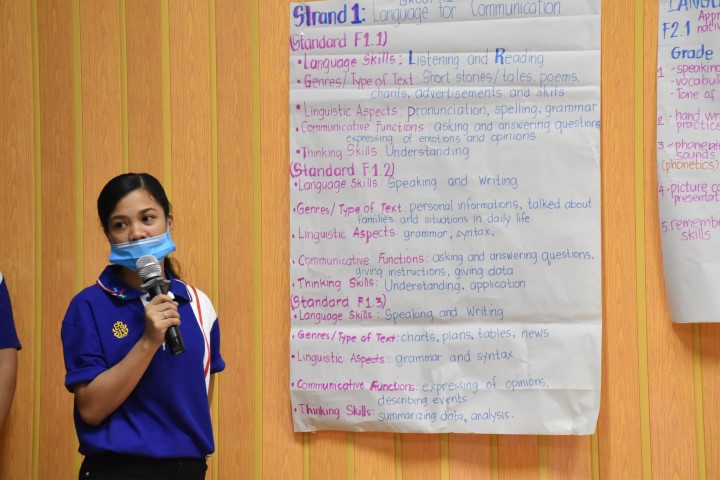 Strand 1: Language for Communication
(Standard F1.1)
• Language Skills: Listening and Reading
• Genres/Type of Text: Short stories/tales, poems,
chants, advertisements and skits
• Linguistic Aspects: pronunciation, spelling, grammar
• Communicative Functions: asking and answering questions
expressing of emotions and opinions
• Thinking Skills: Understanding
(Standard F1.2)
• Language Skills: Speaking and Writing
• Genres/Type of Text: personal informations, talked about
families and situations in daily life
• Linguistic Aspects: grammar, syntax,
• Communicative Functions: asking and answering questions.
giving instructions, giving data
• Thinking Skills: Understanding, application
(Standard F1.3)
• Language Skills: Speaking and Writing
• Genres/Type of Text: charts, plans, tables, news
• Linguistic Aspects: grammar and syntax
• Communicative Functions: expressing of opinions,
describing events
• Thinking Skills: summarizing data, analysis.
F2.1
Grade
1 - speaking
- vocabul
- Tone of
2 - hand wr
practice
3 - phone
sounds
(phonetics)
4 - picture
presentat
5 - rememb
skills